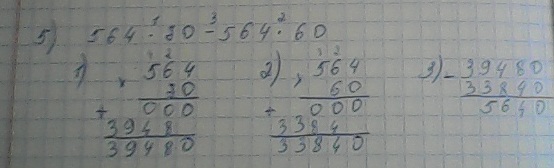 1 3 2
5) 564 · 70 - 564 · 60
1) × 564
70
+ 000
3948
39480
2) × 564
60
+ 000
3384
33840
3) - 39480
33840
5640